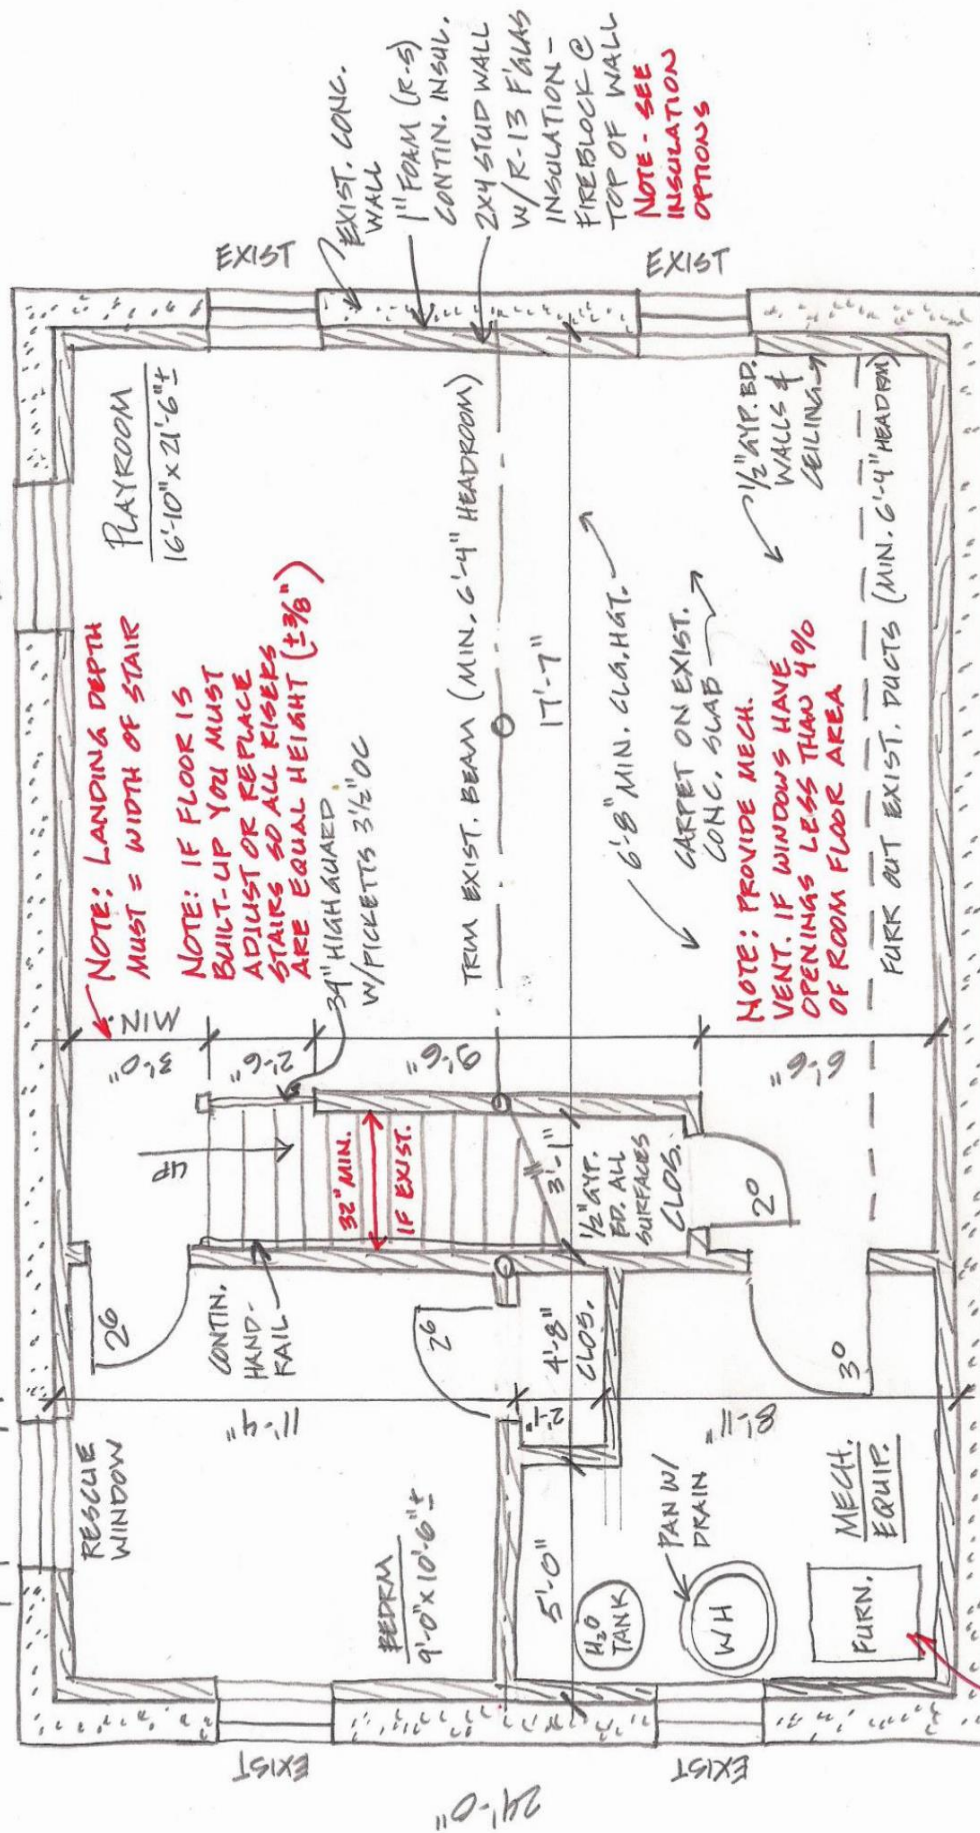 EXIST. CONC.
WALL
1" FOAM (R-5)
CONTIN. INSUL.
2X4 STUD WALL
W/R-13 F'GLAS
INSULATION -
FIREBLOCK @
TOP OF WALL
NOTE - SEE
INSULATION
OPTIONS
EXIST
EXIST
PLAYROOM
16'-10" X 21'-6" ±
NOTE: LANDING DEPTH
MUST = WIDTH OF STAIR
NOTE: IF FLOOR IS
BUILT-UP YOU MUST
ADJUST OR REPLACE
STAIRS SO ALL RISERS
ARE EQUAL HEIGHT (±3/8")
34" HIGH GUARD
W/PICKETTS 3 1/2" OC
TRIM EXIST. BEAM (MIN. 6'-4" HEADROOM)
17'-7"
6'-8" MIN. CLG. HGT.
CARPET ON EXIST.
CONC. SLAB
1/2" GYP. BD.
WALLS &
CEILING
NOTE: PROVIDE MECH.
VENT. IF WINDOWS HAVE
OPENINGS LESS THAN 4%
OF ROOM FLOOR AREA
FURR OUT EXIST. DUCTS (MIN. 6'-4" HEADRM)
MIN.
3'-0"
2'-6"
9'-6"
6'-6"
UP
32" MIN.
IF EXIST.
3'-1"
1/2" GYP.
BD. ALL
SURFACES
CLOS.
2⁰
2⁶
CONTIN.
HAND-
RAIL
2⁶
4'-8"
CLOS.
3⁰
11'-4"
2'-1"
8'-11"
RESCUE
WINDOW
BEDRM
9'-0" X 10'-6" ±
5'-0"
PAN W/
DRAIN
H₂O
TANK
WH
MECH.
EQUIP.
FURN.
EXIST
EXIST
24'-0"